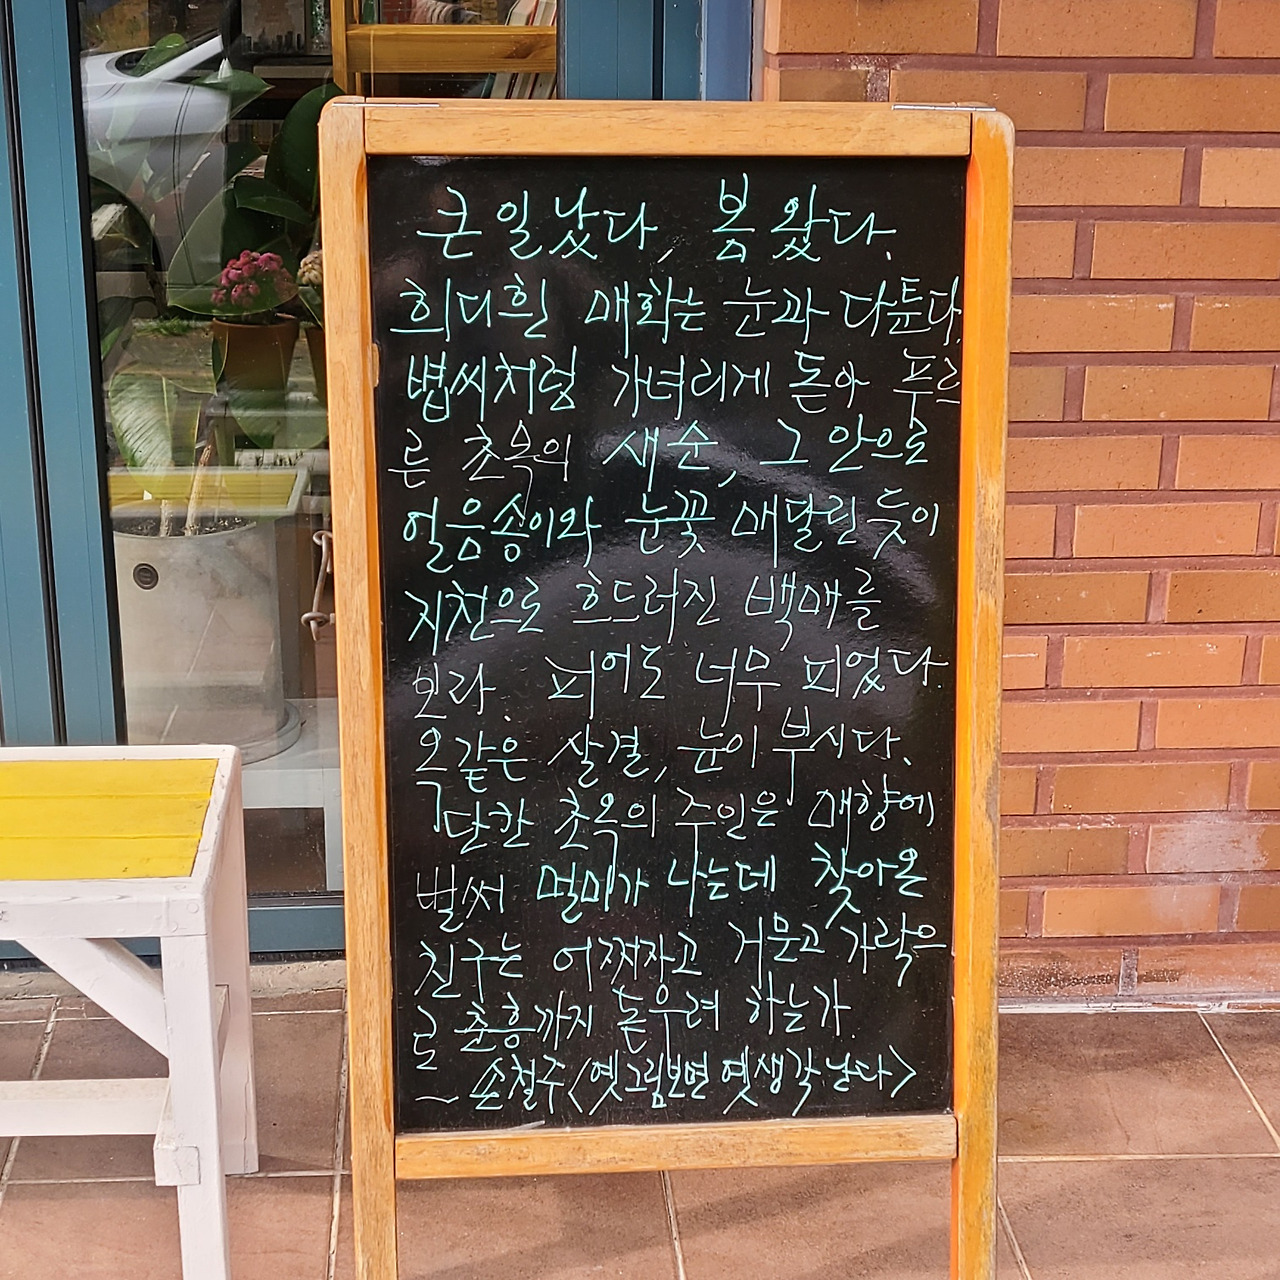 큰일났다, 봄 왔다.
희디흰 매화는 눈과 다툰다.
볍씨처럼 가녀리게 돋아 푸르
른 초옥의 새순, 그 안으로
얼음송이와 눈꽃 매달린 듯이
지천으로 흐드러진 백매를
보라. 피어도 너무 피었다.
옥같은 살결, 눈이 부시다.
단칸 초옥의 주인은 매향에
벌써 멀미가 나는데 찾아온
친구는 어쩌자고 거문고 가락으
로 춘흥까지 돋우려 하는가.
~ 손철주 <옛그림 보면 옛생각 난다>